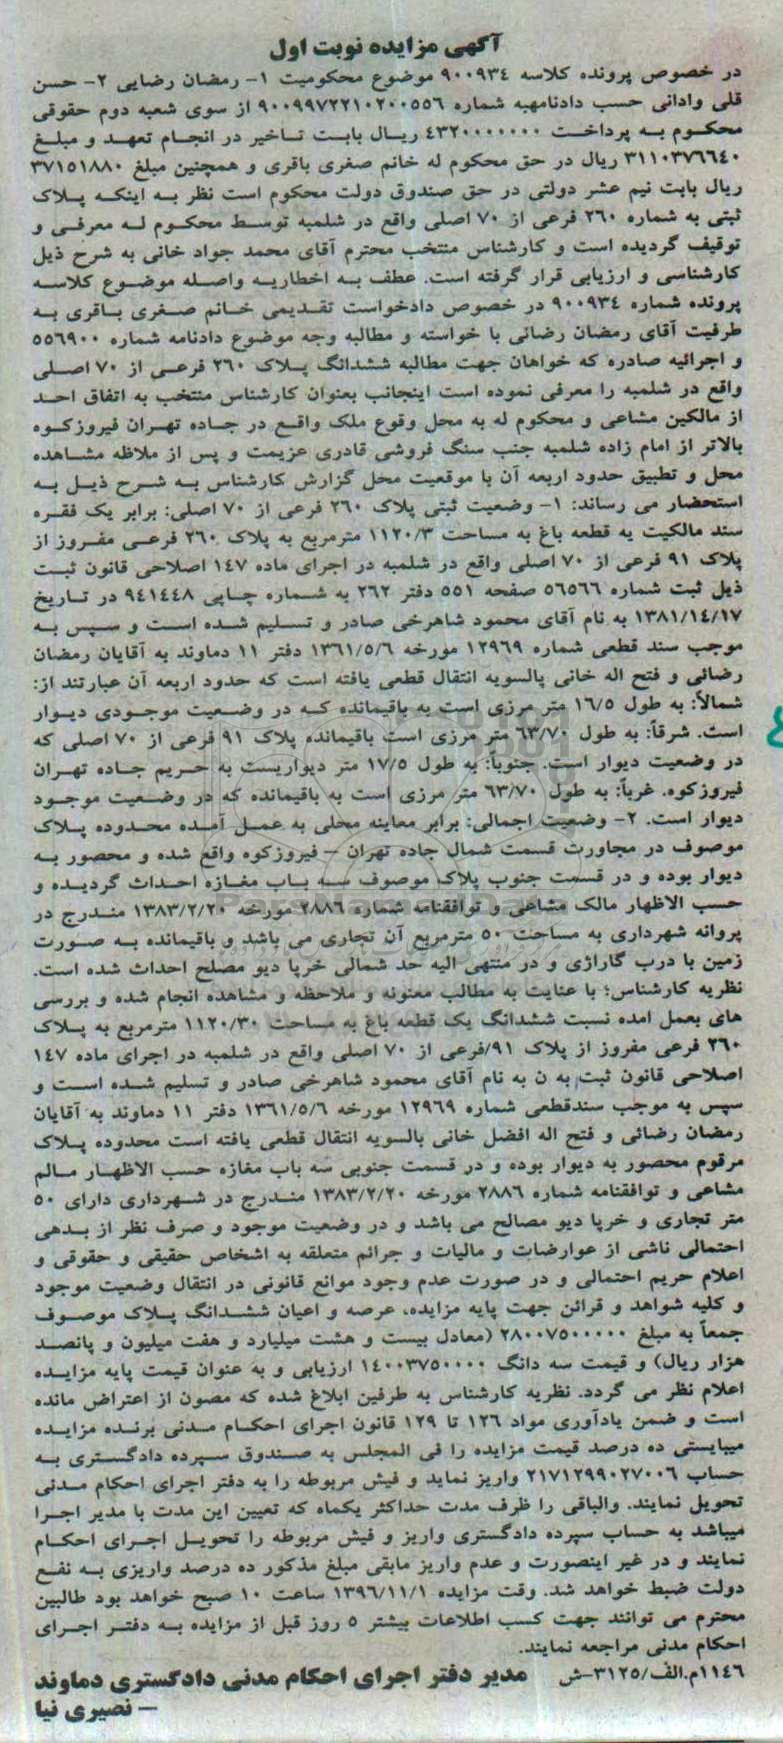 آگهی مزایده نوبت اول
در خصوص پرونده کلاسه ۹۰۰۹۳۴ موضوع محکومیت ۱- رمضان رضایی ۲- حسن
قلی وادانی حسب دادنامهبه شماره ۹۰۰۹۹۷۲۲۱۰۲۰۰۵۵۶ از سوی شعبه دوم حقوقی
محکوم به پرداخت ۴۳۲۰۰۰۰۰۰۰ ریال بابت تاخیر در انجام تعهد و مبلغ
۳۱۱۰۳۷۶۶۴۰ ریال در حق محکوم له خانم صغری باقری و همچنین مبلغ ۳۷۱۵۱۸۸۰
ریال بابت نیم عشر دولتی در حق صندوق دولت محکوم است نظر به اینکه پلاک
ثبتی به شماره ۲۶۰ فرعی از ۷۰ اصلی واقع در شلمبه توسط محکوم له معرفی و
توقیف گردیده است و کارشناس منتخب محترم آقای محمد جواد خانی به شرح ذیل
کارشناسی و ارزیابی قرار گرفته است. عطف به اخطاریه واصله موضوع کلاسه
پرونده شماره ۹۰۰۹۳۴ در خصوص دادخواست تقدیمی خانم صغری باقری به
طرفیت آقای رمضان رضائی با خواسته و مطالبه وجه موضوع دادنامه شماره ۵۵۶۹۰۰
و اجرائیه صادره که خواهان جهت مطالبه ششدانگ پلاک ۲۶۰ فرعی از ۷۰ اصلی
واقع در شلمبه را معرفی نموده است اینجانب بعنوان کارشناس منتخب به اتفاق احد
از مالکین مشاعی و محکوم له به محل وقوع ملک واقع در جاده تهران فیروزکوه
بالاتر از امام زاده شلمبه جنب سنگ فروشی قادری عزیمت و پس از ملاظه مشاهده
محل و تطبیق حدود اربعه آن با موقعیت محل گزارش کارشناس به شرح ذیل به
استحضار می رساند: ۱- وضعیت ثبتی پلاک ۲۶۰ فرعی از ۷۰ اصلی: برابر یک فقره
سند مالکیت یه قطعه باغ به مساحت ۱۱۲۰/۳ مترمربع به پلاک ۲۶۰ فرعی مفروز از
پلاک ۹۱ فرعی از ۷۰ اصلی واقع در شلمبه در اجرای ماده ۱۴۷ اصلاحی قانون ثبت
ذیل ثبت شماره ۵۶۵۶۶ صفحه ۵۵۱ دفتر ۲۶۲ به شماره چاپی ۹۴۱۴۴۸ در تاریخ
۱۳۸۱/۱۴/۱۷ به نام آقای محمود شاهرخی صادر و تسلیم شده است و سپس به
موجب سند قطعی شماره ۱۲۹۶۹ مورخه ۱۳۶۱/۵/۶ دفتر ۱۱ دماوند به آقایان رمضان
رضائی و فتح اله خانی پالسویه انتقال قطعی یافته است که حدود اربعه آن عبارتند از:
شمالاً: به طول ۱۶/۵ متر مرزی است به باقیمانده که در وضعیت موجودی دیوار
است. شرقاً: به طول ۶۳/۷۰ متر مرزی است باقیمانده پلاک ۹۱ فرعی از ۷۰ اصلی که
در وضعیت دیوار است. جنوباً: به طول ۱۷/۵ متر دیواریست به حریم جاده تهران
فیروزکوه. غرباً: به طول ۶۳/۷۰ متر مرزی است به باقیمانده که در وضعیت موجود
دیوار است. ۲- وضعیت اجمالی: برابر معاینه محلی به عمل آمده محدوده پلاک
موصوف در مجاورت قسمت شمال جاده تهران – فیروزکوه واقع شده و محصور به
دیوار بوده و در قسمت جنوب پلاک موصوف سه باب مغازه احداث گردیده و
حسب الاظهار مالک مشاعی و توافقنامه شماره ۲۸۸۶ مورخه ۱۳۸۳/۲/۲۰ مندرج در
پروانه شهرداری به مساحت ۵۰ مترمربع آن تجاری می باشد و باقیمانده به صورت
زمین با درب گاراژی و در منتهی الیه حد شمالی خرپا دیو مصلح احداث شده است.
نظریه کارشناس؛ با عنایت به مطالب معنونه و ملاحظه و مشاهده انجام شده و بررسی
های بعمل امده نسبت ششدانگ یک قطعه باغ به مساحت ۱۱۲۰/۳۰ مترمربع به پلاک
۲۶۰ فرعی مفروز از پلاک ۹۱/فرعی از ۷۰ اصلی واقع در شلمبه در اجرای ماده ۱۴۷
اصلاحی قانون ثبت به ن به نام آقای محمود شاهرخی صادر و تسلیم شده است و
سپس به موجب سندقطعی شماره ۱۲۹۶۹ مورخه ۱۳۶۱/۵/۶ دفتر ۱۱ دماوند به آقایان
رمضان رضائی و فتح اله افضل خانی بالسویه انتقال قطعی یافته است محدوده پلاک
مرقوم محصور به دیوار بوده و در قسمت جنوبی سه باب مغازه حسب الاظهار مالم
مشاعی و توافقنامه شماره ۲۸۸۶ مورخه ۱۳۸۳/۲/۲۰ مندرج در شهرداری دارای ۵۰
متر تجاری و خرپا دیو مصالح می باشد و در وضعیت موجود و صرف نظر از بدهی
احتمالی ناشی از عوارضات و مالیات و جرائم متعلقه به اشخاص حقیقی و حقوقی و
اعلام حریم احتمالی و در صورت عدم وجود موانع قانونی در انتقال وضعیت موجود
و کلیه شواهد و قرائن جهت پایه مزایده، عرصه و اعیان ششدانگ پلاک موصوف
جمعاً به مبلغ ۲۸۰۰۷۵۰۰۰۰۰ (معادل بیست و هشت میلیارد و هفت میلیون و پانصد
هزار ریال) و قیمت سه دانگ ۱۴۰۰۳۷۵۰۰۰۰ ارزیابی و به عنوان قیمت پایه مزایده
اعلام نظر می گردد. نظریه کارشناس به طرفین ابلاغ شده که مصون از اعتراض مانده
است و ضمن یادآوری مواد ۱۲۶ تا ۱۲۹ قانون اجرای احکام مدنی برنده مزایده
میبایستی ده درصد قیمت مزایده را فی المجلس به صندوق سپرده دادگستری به
حساب ۲۱۷۱۲۹۹۰۲۷۰۰۶ واریز نماید و فیش مربوطه را به دفتر اجرای احکام مدنی
تحویل نمایند. والباقی را ظرف مدت حداکثر یکماه که تعیین این مدت با مدیر اجرا
میباشد به حساب سپرده دادگستری واریز و فیش مربوطه را تحویل اجرای احکام
نمایند و در غیر اینصورت و عدم واریز مابقی مبلغ مذکور ده درصد واریزی به نفع
دولت ضبط خواهد شد. وقت مزایده ۱۳۹۶/۱۱/۱ ساعت ۱۰ صبح خواهد بود طالبین
محترم می توانند جهت کسب اطلاعات بیشتر ۵ روز قبل از مزایده به دفتر اجرای
احکام مدنی مراجعه نمایند.
۱۱۴۶م.الف/۳۱۲۵-ش مدیر دفتر اجرای احکام مدنی دادگستری دماوند
– نصیری نیا